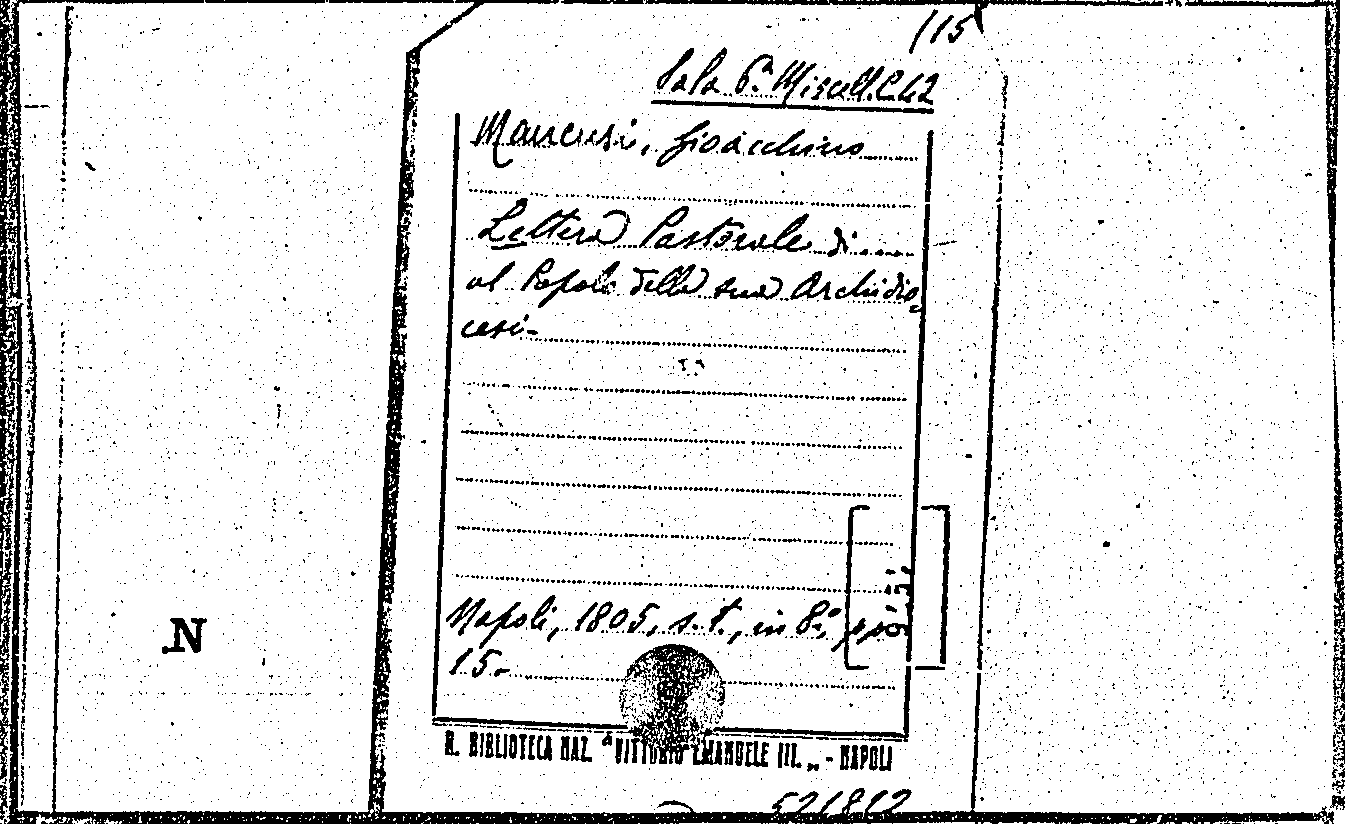 115
Sala 6ª Miscell. C42
Mancusi, Gioacchino
Lettera Pastorale di....
al Popolo della sua Archidio,
cesi-
Napoli, 1805, s.t., in 8º, pp.
15-
R. BIBLIOTECA NAZ. "VITTORIO EMANUELE III. „ - NAPOLI
N
521812